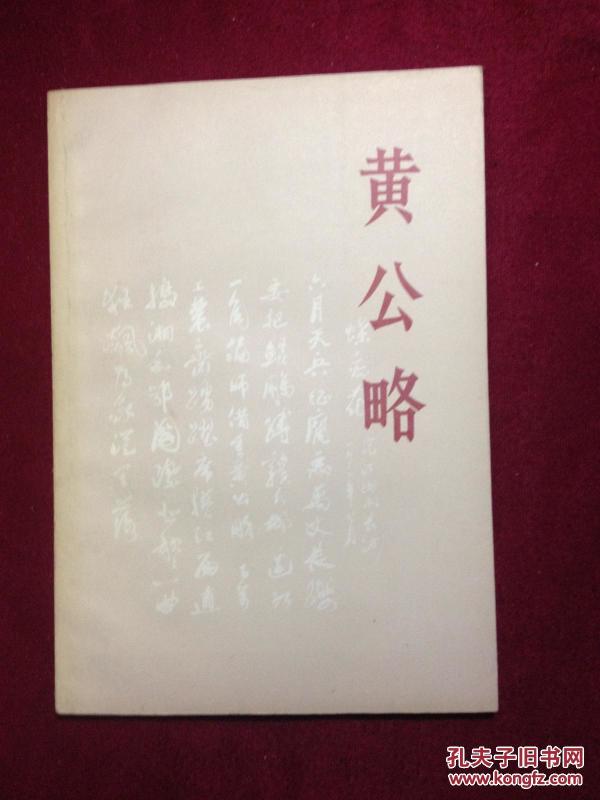 黄公略
蝶恋花
从汀州向长沙
六月天兵征腐恶万丈长缨
要把鲲鹏缚赣水那边红
一角偏师借重黄公略百万
工农齐踊跃席卷江西直
捣湘和鄂国际悲歌一曲
狂飙为我从天落
孔夫子旧书网
www.kongfz.com